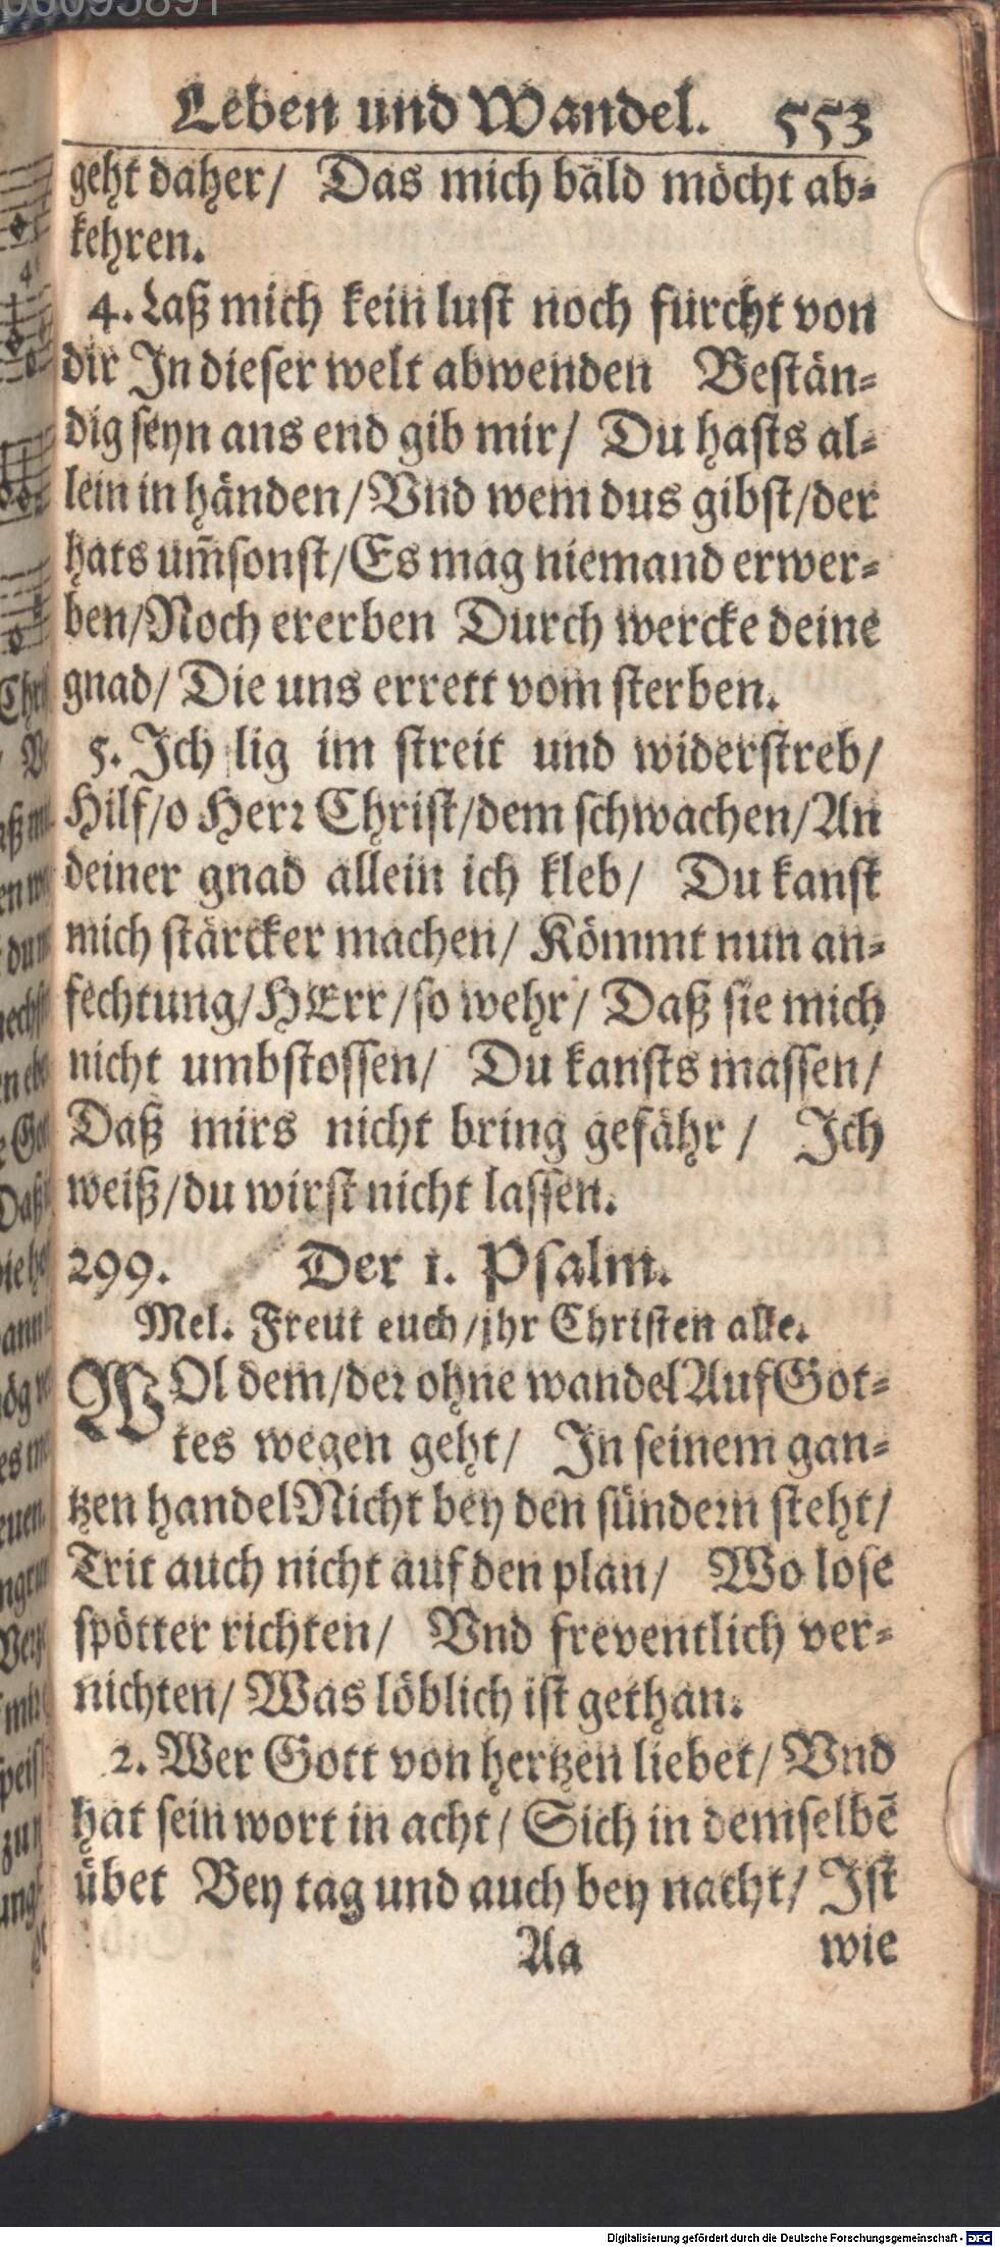 Leben und Wandel. 553
geht daher/ Das mich bald möcht ab-
kehren.
4. Laß mich kein lust noch furcht von
dir In dieser welt abwenden Bestän-
dig seyn ans end gib mir/ Du hasts al-
lein in händen/ Vnd wem dus gibst/ der
hats um̃sonst/ Es mag niemand erwer-
ben/ Noch ererben Durch wercke deine
gnad/ Die uns errett vom sterben.
5. Ich lig im streit und widerstreb/
Hilf/ o Herr Christ/ dem schwachen/ An
deiner gnad allein ich kleb/ Du kanst
mich stärcker machen/ Kömmt nun an-
fechtung/ HErr/ so wehr/ Daß sie mich
nicht umbstossen/ Du kansts massen/
Daß mirs nicht bring gefähr/ Ich
weiß/ du wirst nicht lassen.
299. Der 1. Psalm.
Mel. Freut euch/ ihr Christen alle.
WOl dem/ der ohne wandel Auf Got-
tes wegen geht/ In seinem gan-
tzen handel Nicht bey den sündern steht/
Trit auch nicht auf den plan/ Wo lose
spötter richten/ Vnd freventlich ver-
nichten/ Was löblich ist gethan.
2. Wer Gott von hertzen liebet/ Vnd
hat sein wort in acht/ Sich in demselbẽ
übet Bey tag und auch bey nacht/ Ist
Aa wie
Digitalisierung gefördert durch die Deutsche Forschungsgemeinschaft - DFG